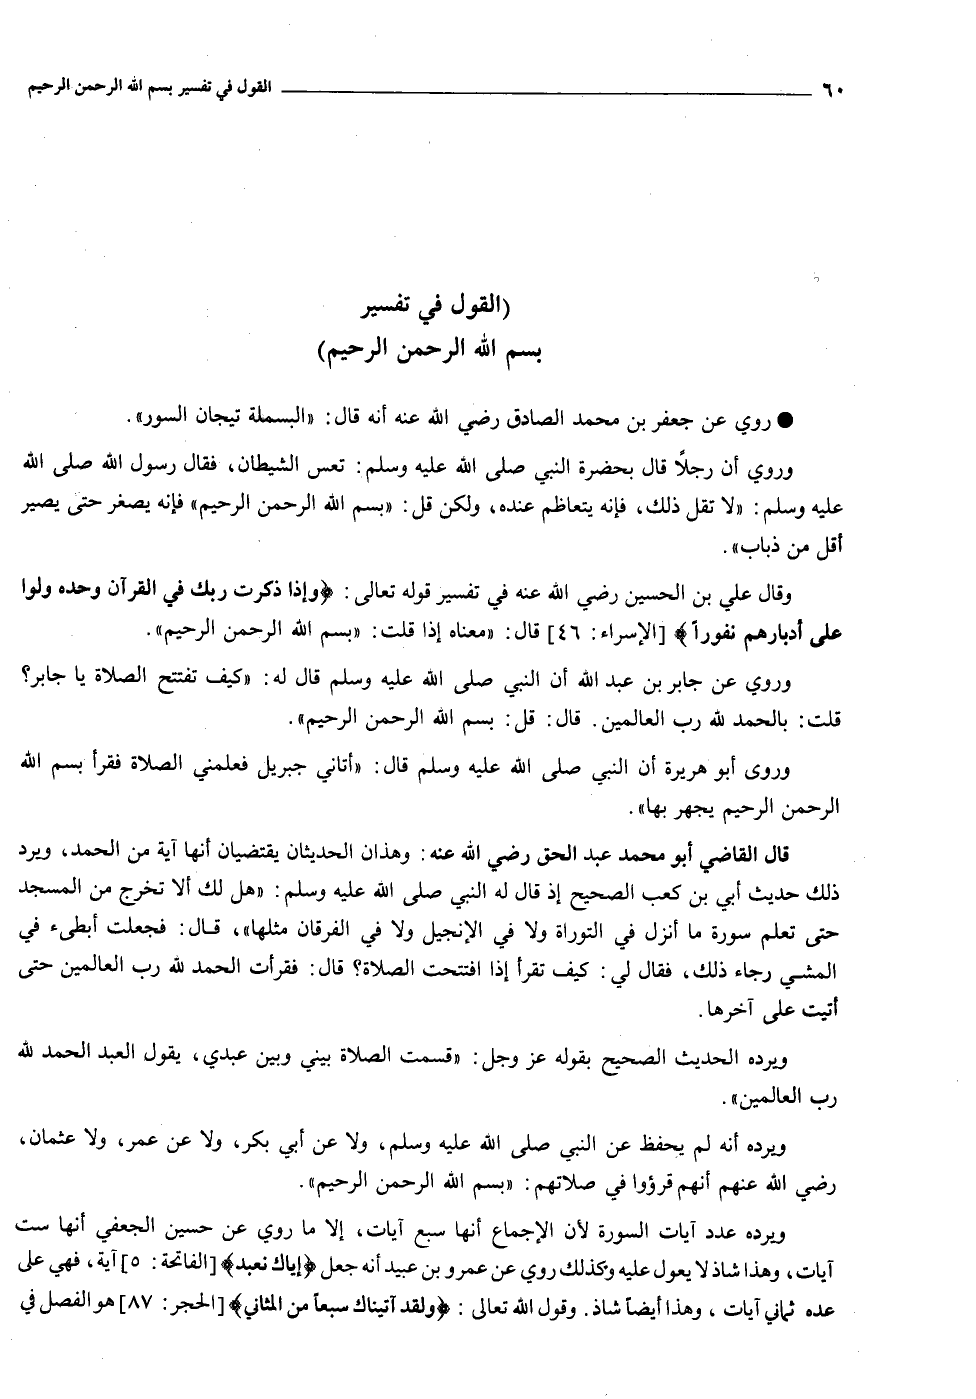 ٦٠ القول في تفسير بسم الله الرحمن الرحيم
(القول في تفسير
بسم الله الرحمن الرحيم)
● روي عن جعفر بن محمد الصادق رضي الله عنه أنه قال: «البسملة تيجان السور».
وروي أن رجلاً قال بحضرة النبي صلى الله عليه وسلم: تعس الشيطان، فقال رسول الله صلى الله
عليه وسلم: «لا تقل ذلك، فإنه يتعاظم عنده، ولكن قل: «بسم الله الرحمن الرحيم» فإنه يصغر حتى يصير
أقل من ذباب».
وقال علي بن الحسين رضي الله عنه في تفسير قوله تعالى: ﴿وإذا ذكرت ربك في القرآن وحده ولوا
على أدبارهم نفوراً﴾ [الإسراء: ٤٦] قال: «معناه إذا قلت: «بسم الله الرحمن الرحيم».
وروي عن جابر بن عبد الله أن النبي صلى الله عليه وسلم قال له: «كيف تفتتح الصلاة يا جابر؟
قلت: بالحمد لله رب العالمين. قال: قل: بسم الله الرحمن الرحيم».
وروى أبو هريرة أن النبي صلى الله عليه وسلم قال: «أتاني جبريل فعلمني الصلاة فقرأ بسم الله
الرحمن الرحيم يجهر بها».
قال القاضي أبو محمد عبد الحق رضي الله عنه: وهذان الحديثان يقتضيان أنها آية من الحمد، ويرد
ذلك حديث أبي بن كعب الصحيح إذ قال له النبي صلى الله عليه وسلم: «هل لك ألا تخرج من المسجد
حتى تعلم سورة ما أنزل في التوراة ولا في الإنجيل ولا في الفرقان مثلها»، قال: فجعلت أبطىء في
المشي رجاء ذلك، فقال لي: كيف تقرأ إذا افتتحت الصلاة؟ قال: فقرأت الحمد لله رب العالمين حتى
أتيت على آخرها.
ويرده الحديث الصحيح بقوله عز وجل: «قسمت الصلاة بيني وبين عبدي، يقول العبد الحمد لله
رب العالمين».
ويرده أنه لم يحفظ عن النبي صلى الله عليه وسلم، ولا عن أبي بكر، ولا عن عمر، ولا عثمان،
رضي الله عنهم أنهم قرؤوا في صلاتهم: «بسم الله الرحمن الرحيم».
ويرده عدد آيات السورة لأن الإجماع أنها سبع آيات، إلا ما روي عن حسين الجعفي أنها ست
آيات، وهذا شاذ لا يعول عليه وكذلك روي عن عمرو بن عبيد أنه جعل ﴿إياك نعبد﴾ [الفاتحة: ٥] آية، فهي على
عده ثماني آيات ، وهذا أيضاً شاذ. وقول الله تعالى : ﴿ولقد آتيناك سبعاً من المثاني﴾ [الحجر: ٨٧] هو الفصل في